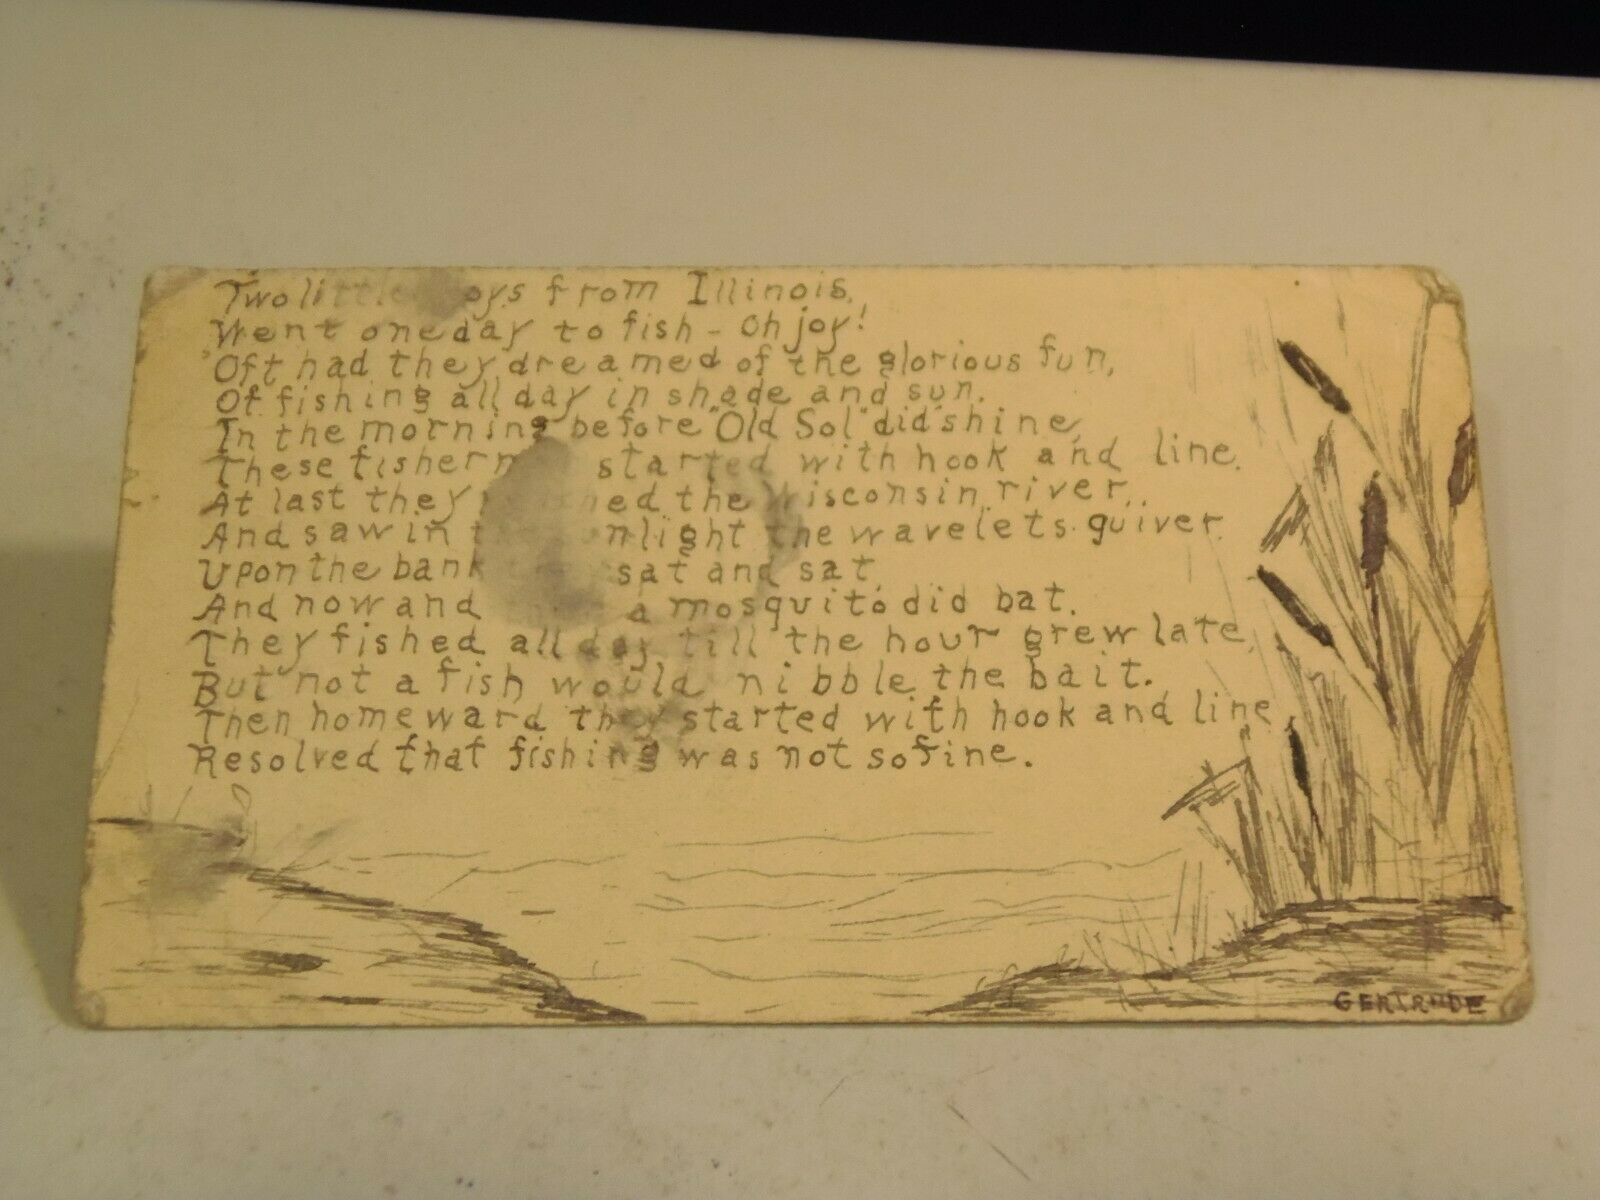 Two little boys from Illinois,
Went one day to fish - Oh joy!
Oft had they dreamed of the glorious fun,
Of fishing all day in shade and sun.
In the morning before "Old Sol" did shine,
These started with hook and line.
At last they the Wisconsin river,
And saw in the wavelets quiver.
Upon the bank sat and sat,
And now and a mosquito did bat.
They fished all day till the hour grew late,
But not a fish would nibble the bait.
Then homeward they started with hook and line
Resolved that fishing was not so fine.
GERTRUDE